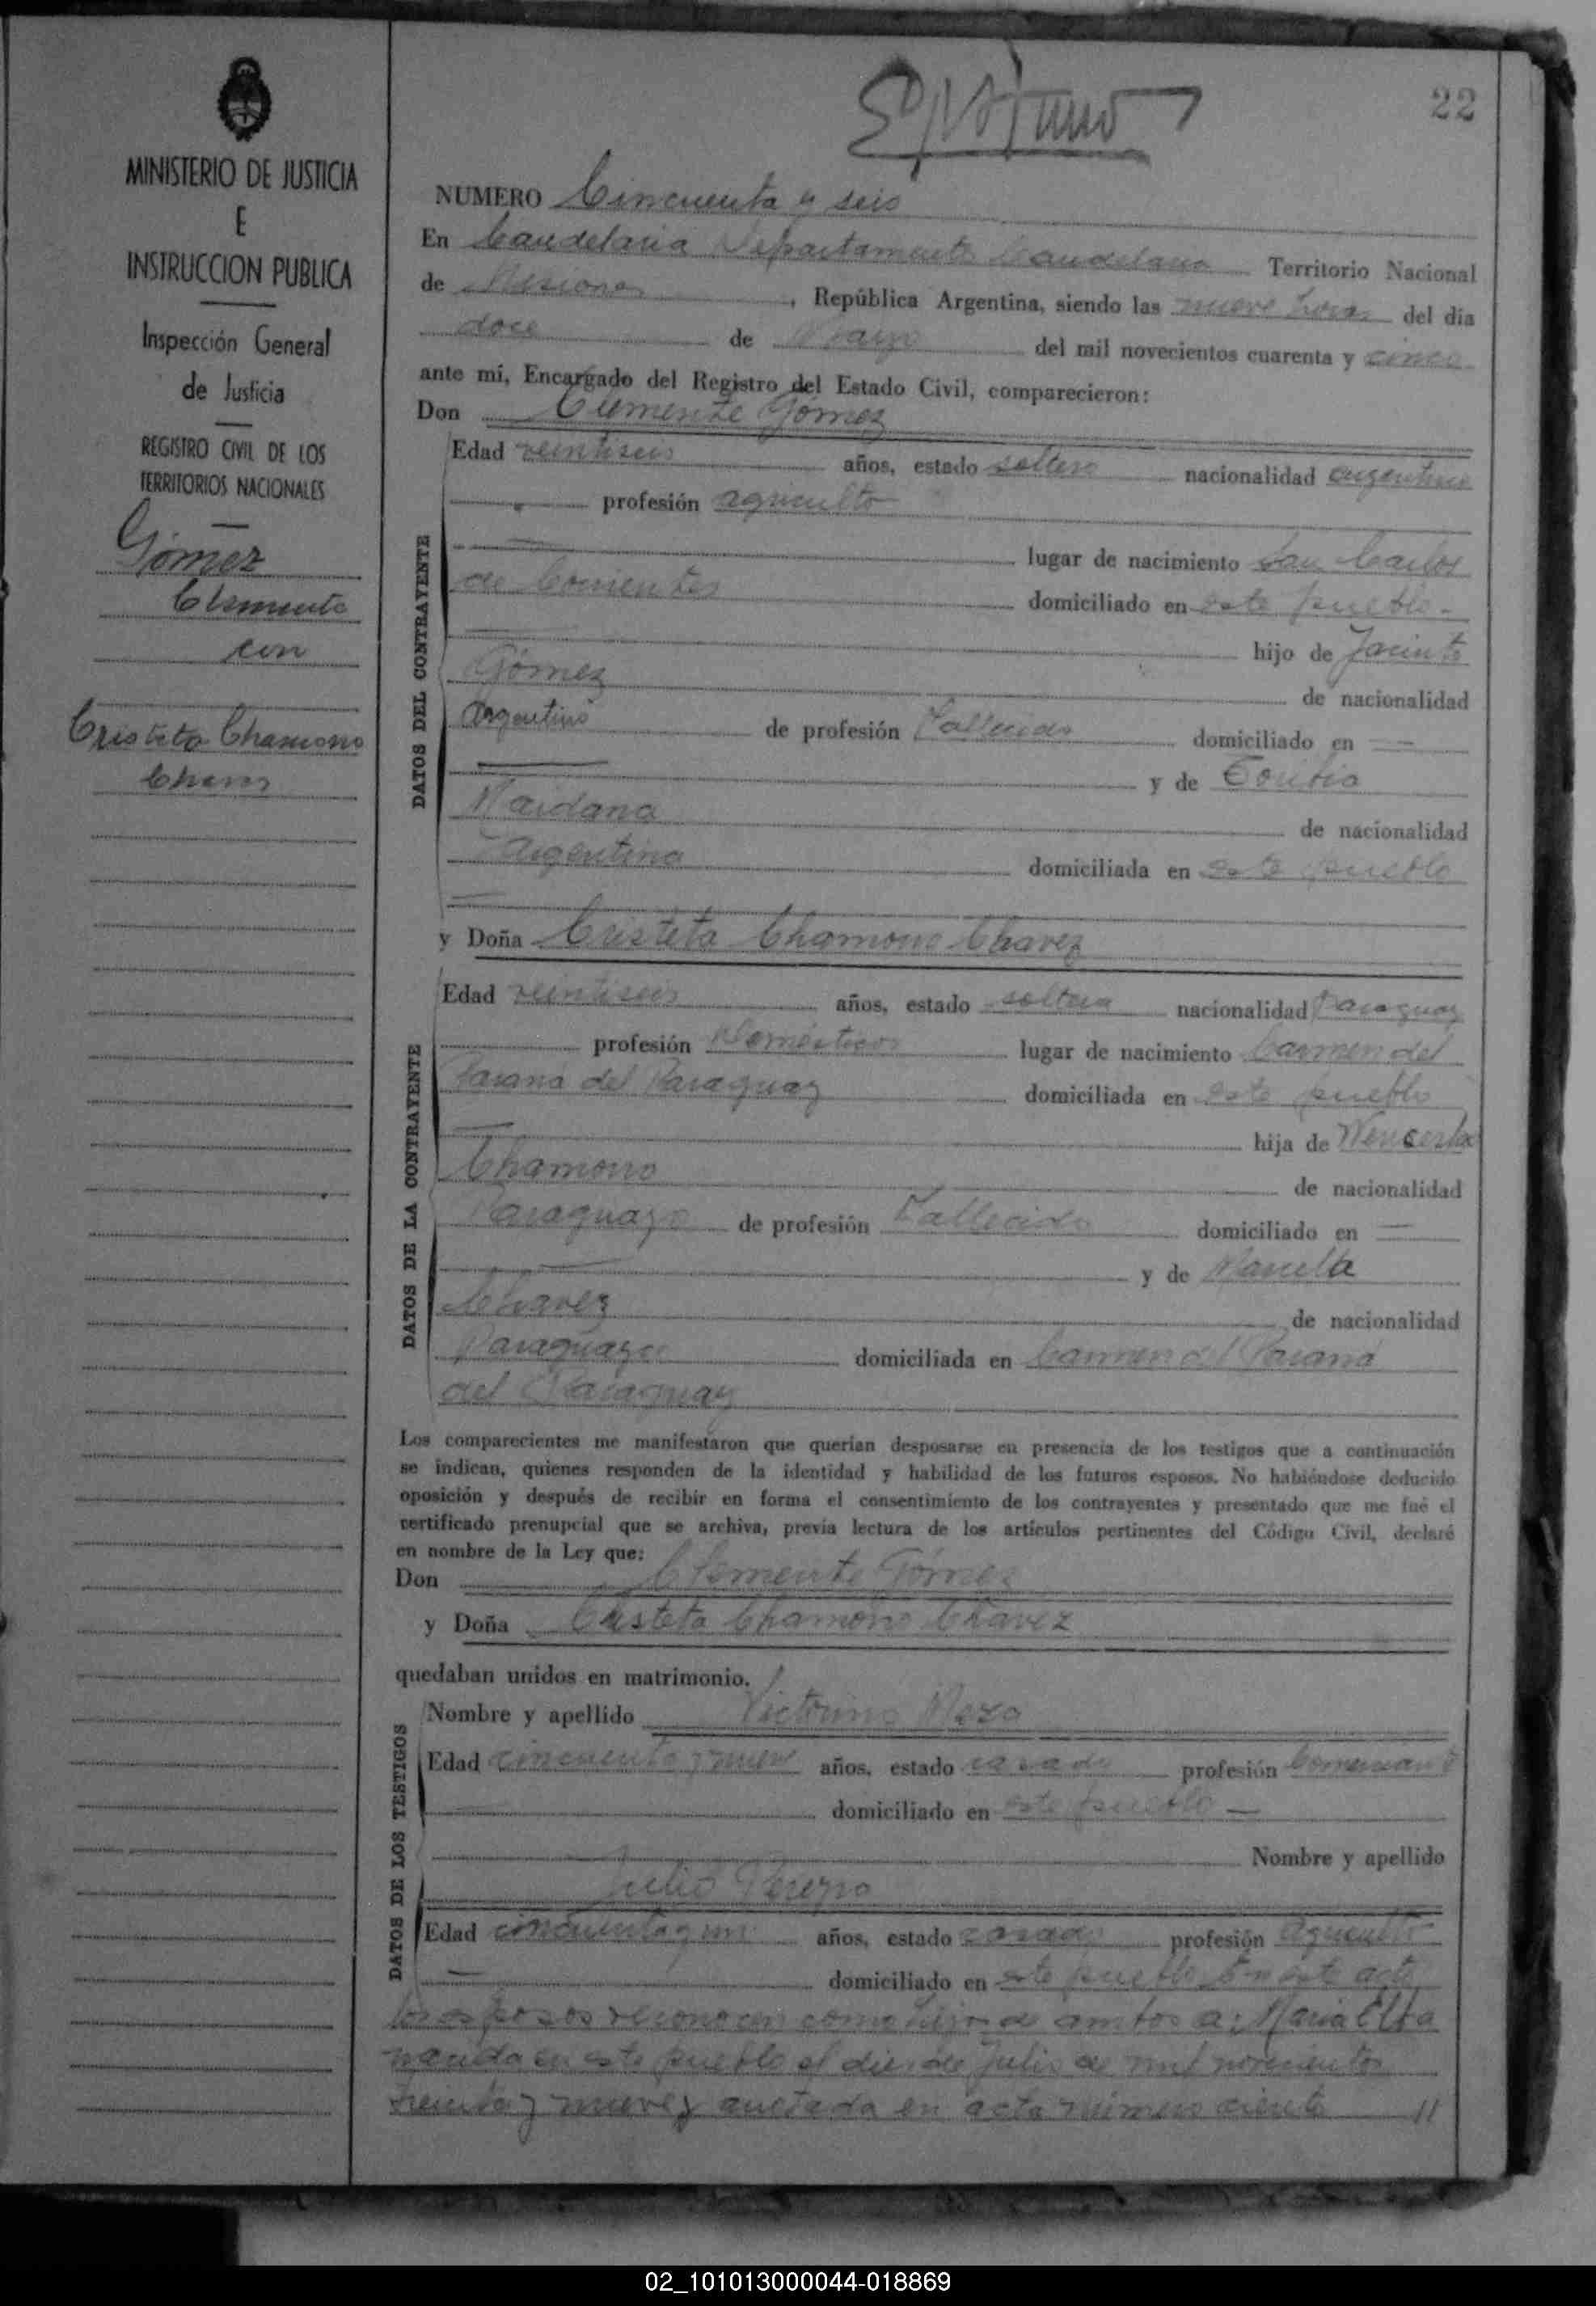 22
MINISTERIO DE JUSTICIA
E
INSTRUCCION PUBLICA
Inspección General
de Justicia
REGISTRO CIVIL DE LOS
TERRITORIOS NACIONALES
Gómez
Clemente
con
Cristeta Chamorro
Chavez
NUMERO Cincuenta y seis
En Candelaria Departamento Candelaria Territorio Nacional
de Misiones, República Argentina, siendo las nueve horas del día
doce de Mayo del mil novecientos cuarenta y cinco
ante mí, Encargado del Registro del Estado Civil, comparecieron:
Don Clemente Gómez
DATOS DEL CONTRAYENTE
Edad veintiseis años, estado soltero nacionalidad argentino
profesión agriculto
lugar de nacimiento San Carlos
de Corrientes domiciliado en este pueblo-
hijo de Jacinto
Gómez de nacionalidad
Argentino de profesión Fallecido domiciliado en —
y de Toribia
Maidana de nacionalidad
Argentina domiciliada en este pueblo
y Doña Cristeta Chamorro Chavez
DATOS DE LA CONTRAYENTE
Edad veintiseis años, estado soltera nacionalidad Paraguay
profesión Domésticos lugar de nacimiento Carmen del
Paraná del Paraguay domiciliada en este pueblo
hija de Wencesla
Chamorro de nacionalidad
Paraguayo de profesión Fallecido domiciliado en —
y de Manuela
Chavez de nacionalidad
Paraguaya domiciliada en Carmen del Paraná
del Paraguay
Los comparecientes me manifestaron que querían desposarse en presencia de los testigos que a continuación
se indican, quienes responden de la identidad y habilidad de los futuros esposos. No habiéndose deducido
oposición y después de recibir en forma el consentimiento de los contrayentes y presentado que me fué el
certificado prenupcial que se archiva, previa lectura de los artículos pertinentes del Código Civil, declaré
en nombre de la Ley que:
Don Clemente Gómez
y Doña Cristeta Chamorro Chavez
quedaban unidos en matrimonio.
DATOS DE LOS TESTIGOS
Nombre y apellido Victorino Meza
Edad cincuenta y nueve años, estado casado profesión Comerciante
domiciliado en este pueblo —
Nombre y apellido
Julio Pereyra
Edad cincuenta y un años, estado casado profesión agriculto
domiciliado en este pueblo En este acto
los esposos reconocen como hija de ambos a: Maria Elba
nacida en este pueblo el diez de Julio de mil novecientos
treinta y nueve y anotada en acta número ciento //
02_101013000044-018869